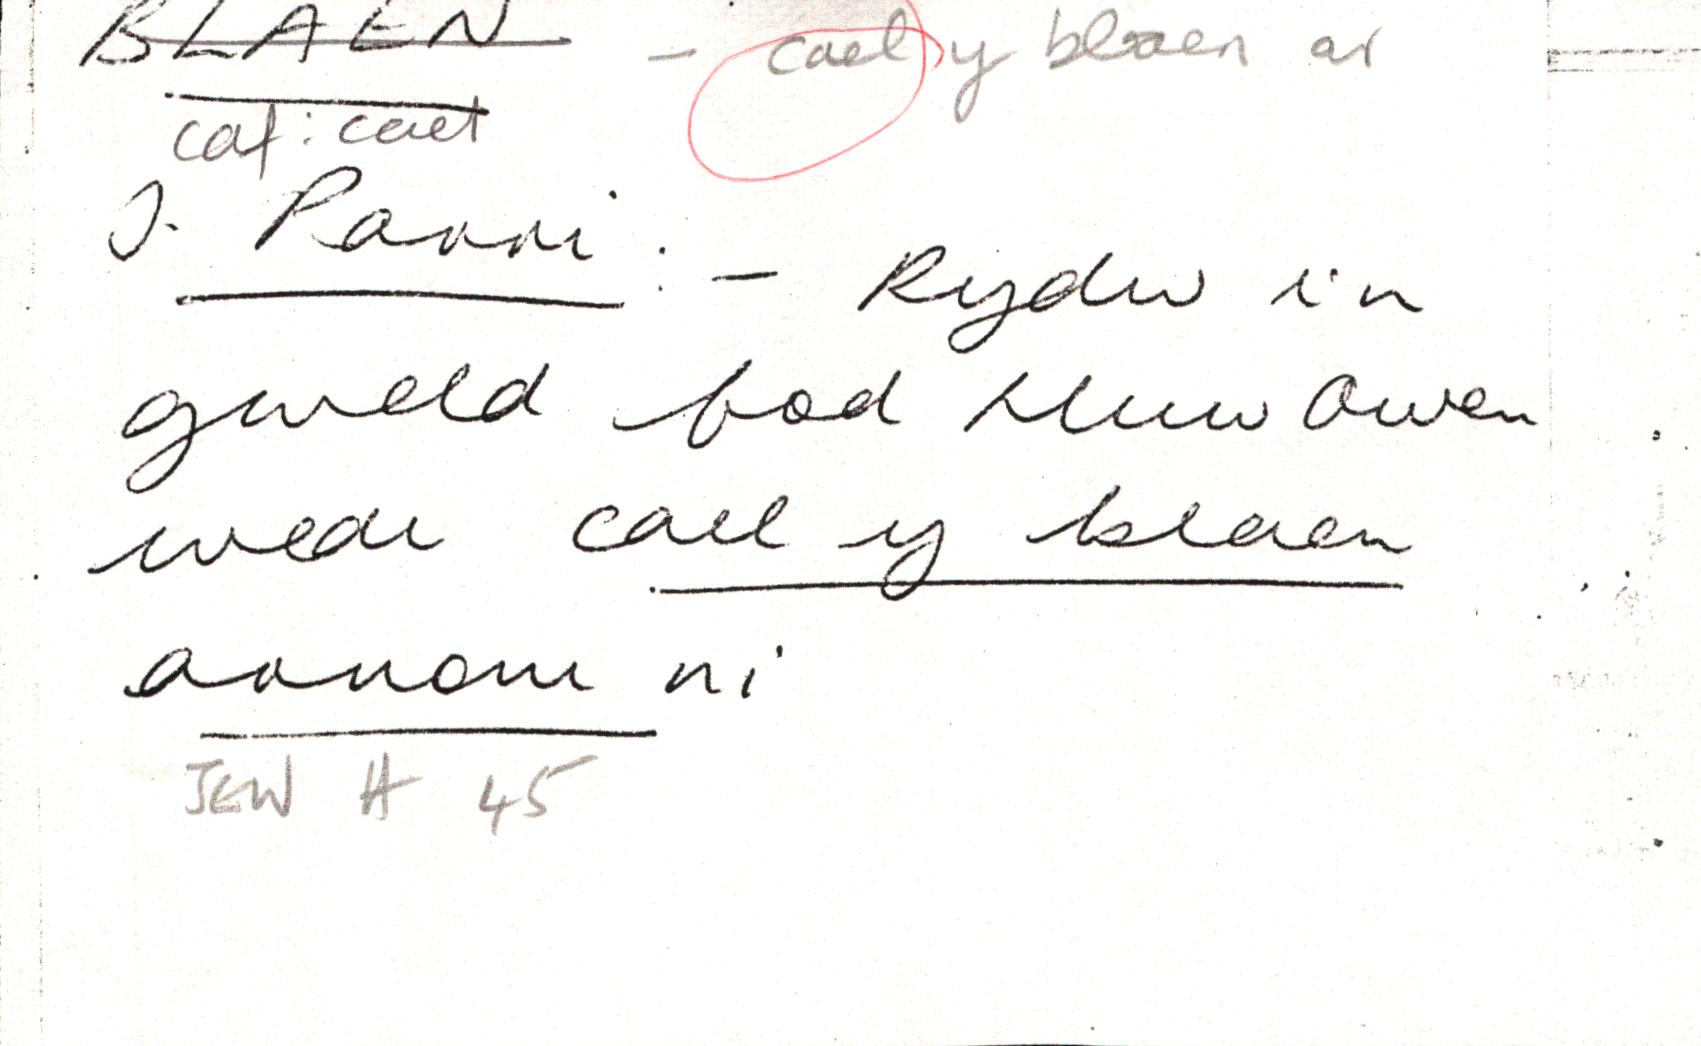 BLAEN - cael y blaen ar
caf: cael
J. Parri: - Rydw i'n
gweld bod Huw Owen
wedi cael y blaen
arnom ni
JEW H 45